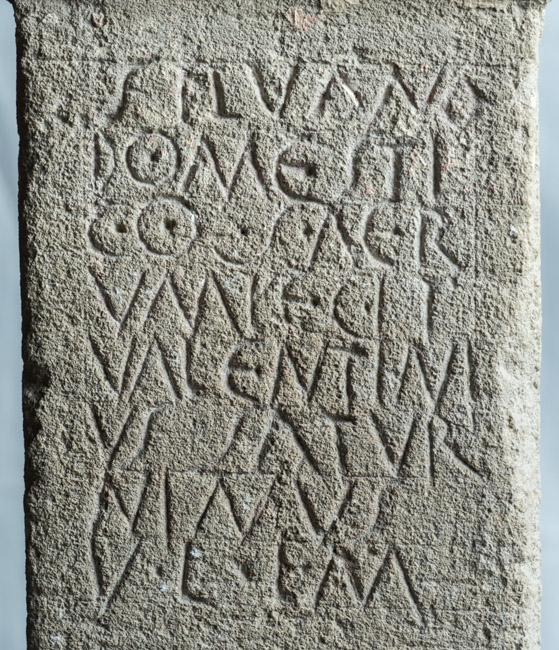 SILVANO
DOMESTI
CO·SACR
VM FECIT
VALENTIN
VS SATVR
NINVS
V·S·L·M